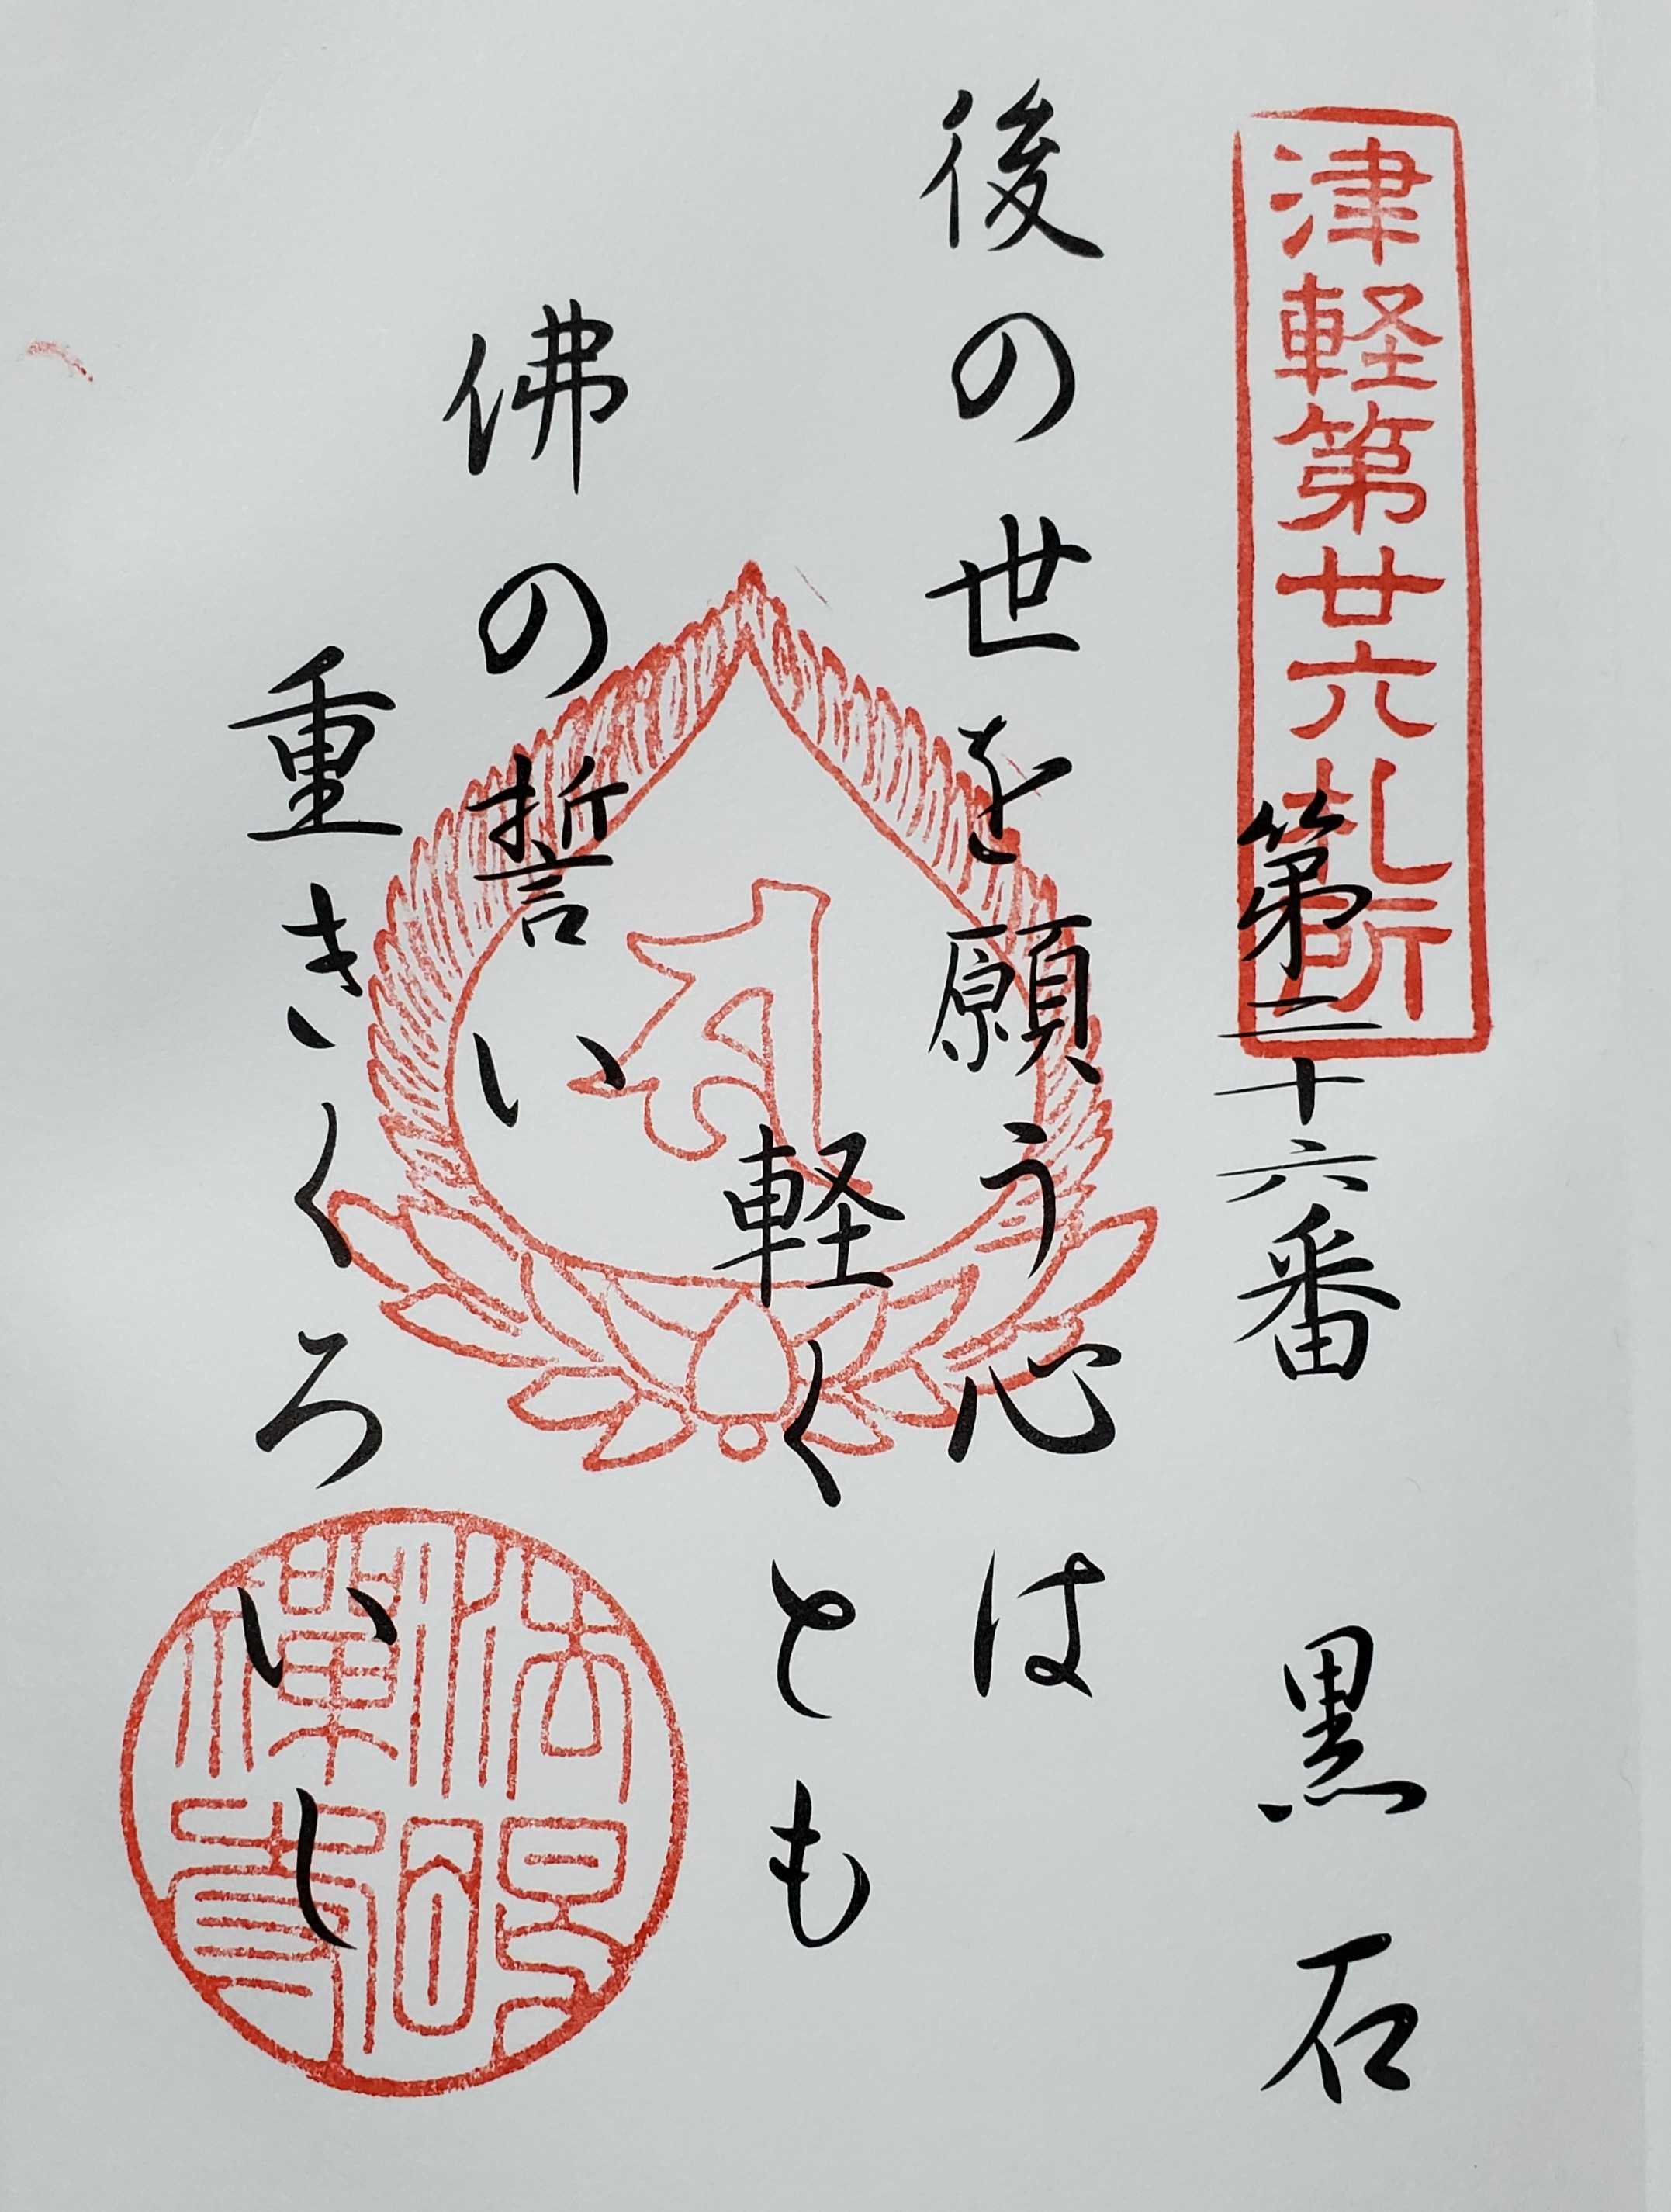 津軽第廿六札所
第二十六番 黒石
後の世を願う心は
軽くとも
佛の誓い
重きくろいし